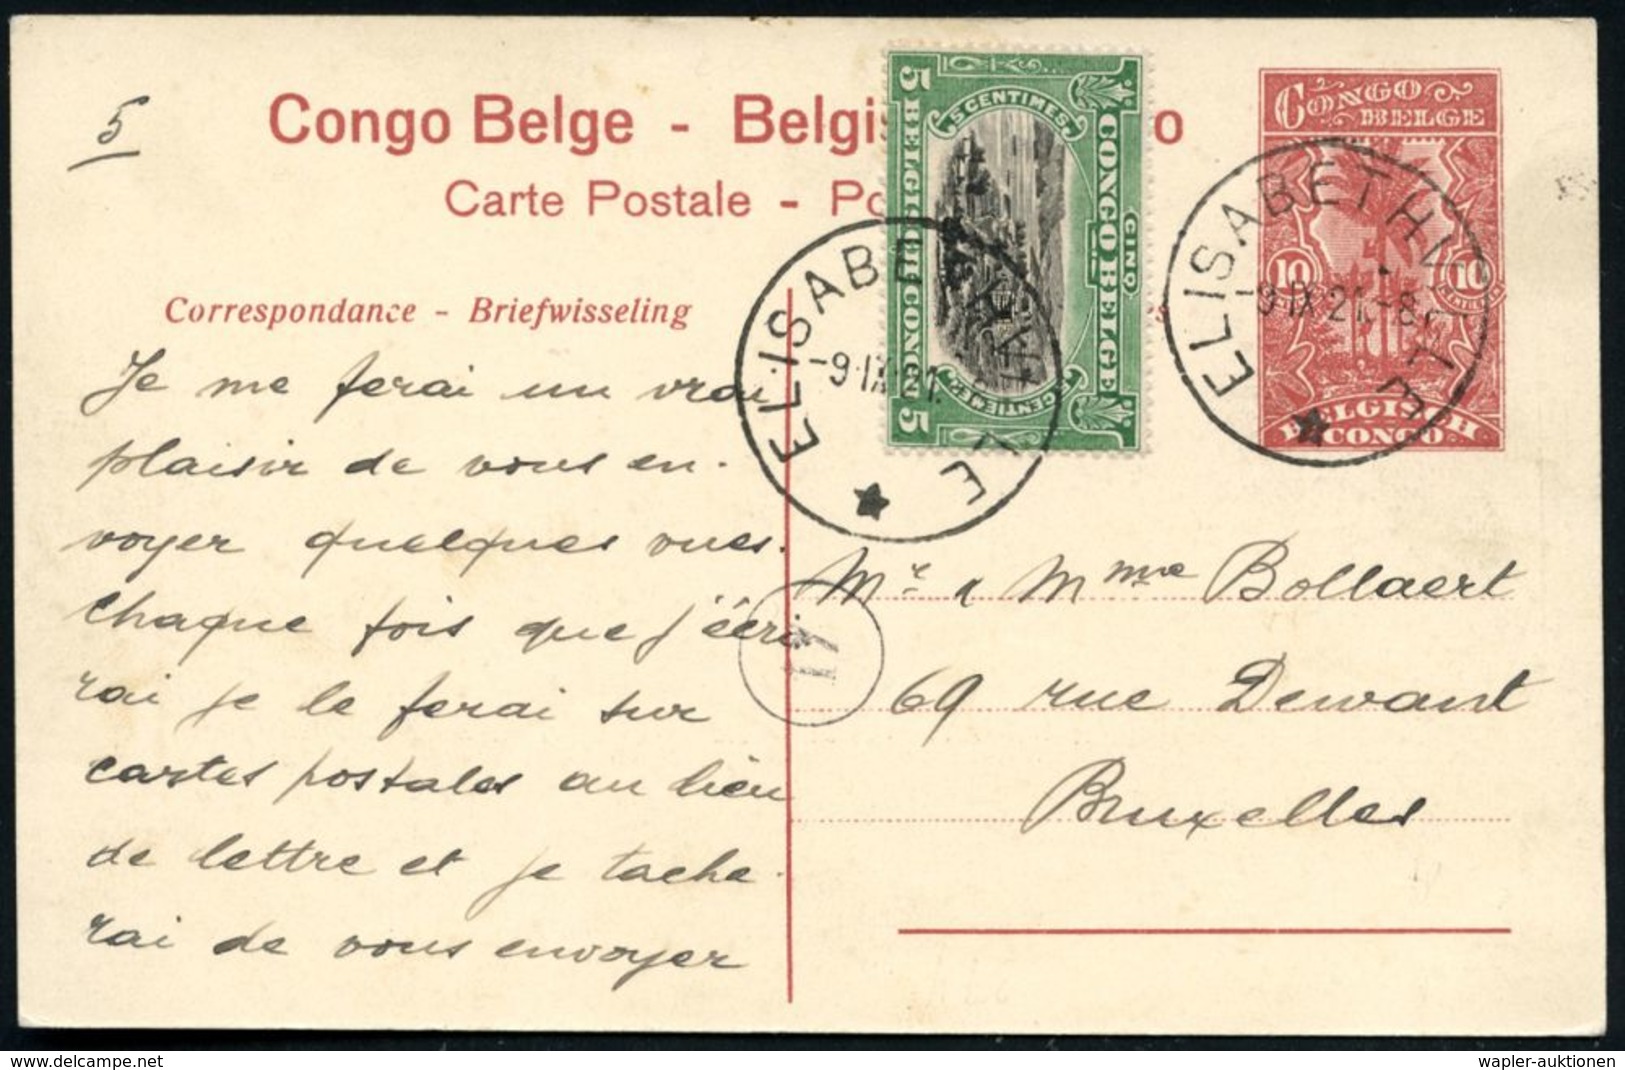 5
Congo Belge - Belgis o
Carte Postale - Po
Correspondance - Briefwisseling
Je me ferai un vrai
plaisir de vous en-
voyer quelques vues.
chaque fois que j'écri
rai je le ferai sur
cartes postales au lieu
de lettre et je tache-
rai de vous envoyer
5 CENTIMES
CINQ
CONGO BELGE
BELGISCH CONGO
5 5
CENTIEMEN
ELISABETHVILLE
-9.IX.21.
CONGO
BELGE
10 10
BELGISCH
CONGO
ELISABETHVILLE
-9.IX.21.-8
17
Mr & Mme Bollaert
69 rue Dewant
Bruxelles
delcampe.net
wapler-auktionen